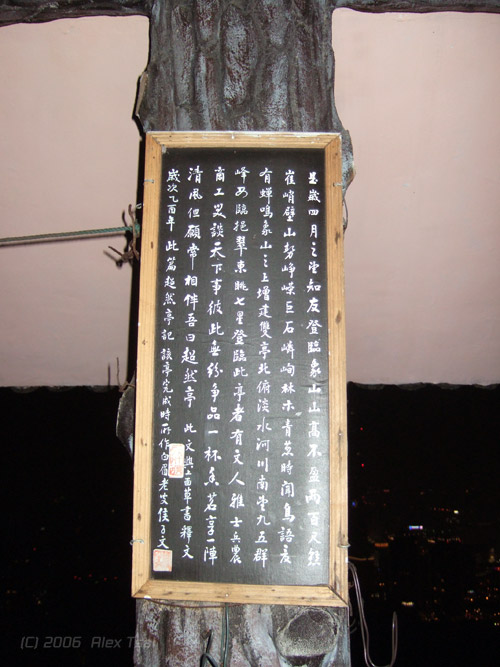 是歲四月之望知友登臨象山山高不盈兩百尺然
崔峭壁山勢崢嶸巨石嶙峋林木青葱時聞鳥語度
有蟬鳴象山之上增建雙亭北俯淡水河川南望九五群
峰如臨挹翠東眺七星登臨此亭者有文人雅士兵農
商工笑談天下事彼此無紛爭品一杯香茗享一陣
清風但願常相伴吾曰超然亭 此文與上面草書釋文
歲次乙酉年 此篇超然亭記 該亭完成時所作白眉老叟侯子文
(C) 2006 Alex Tsai